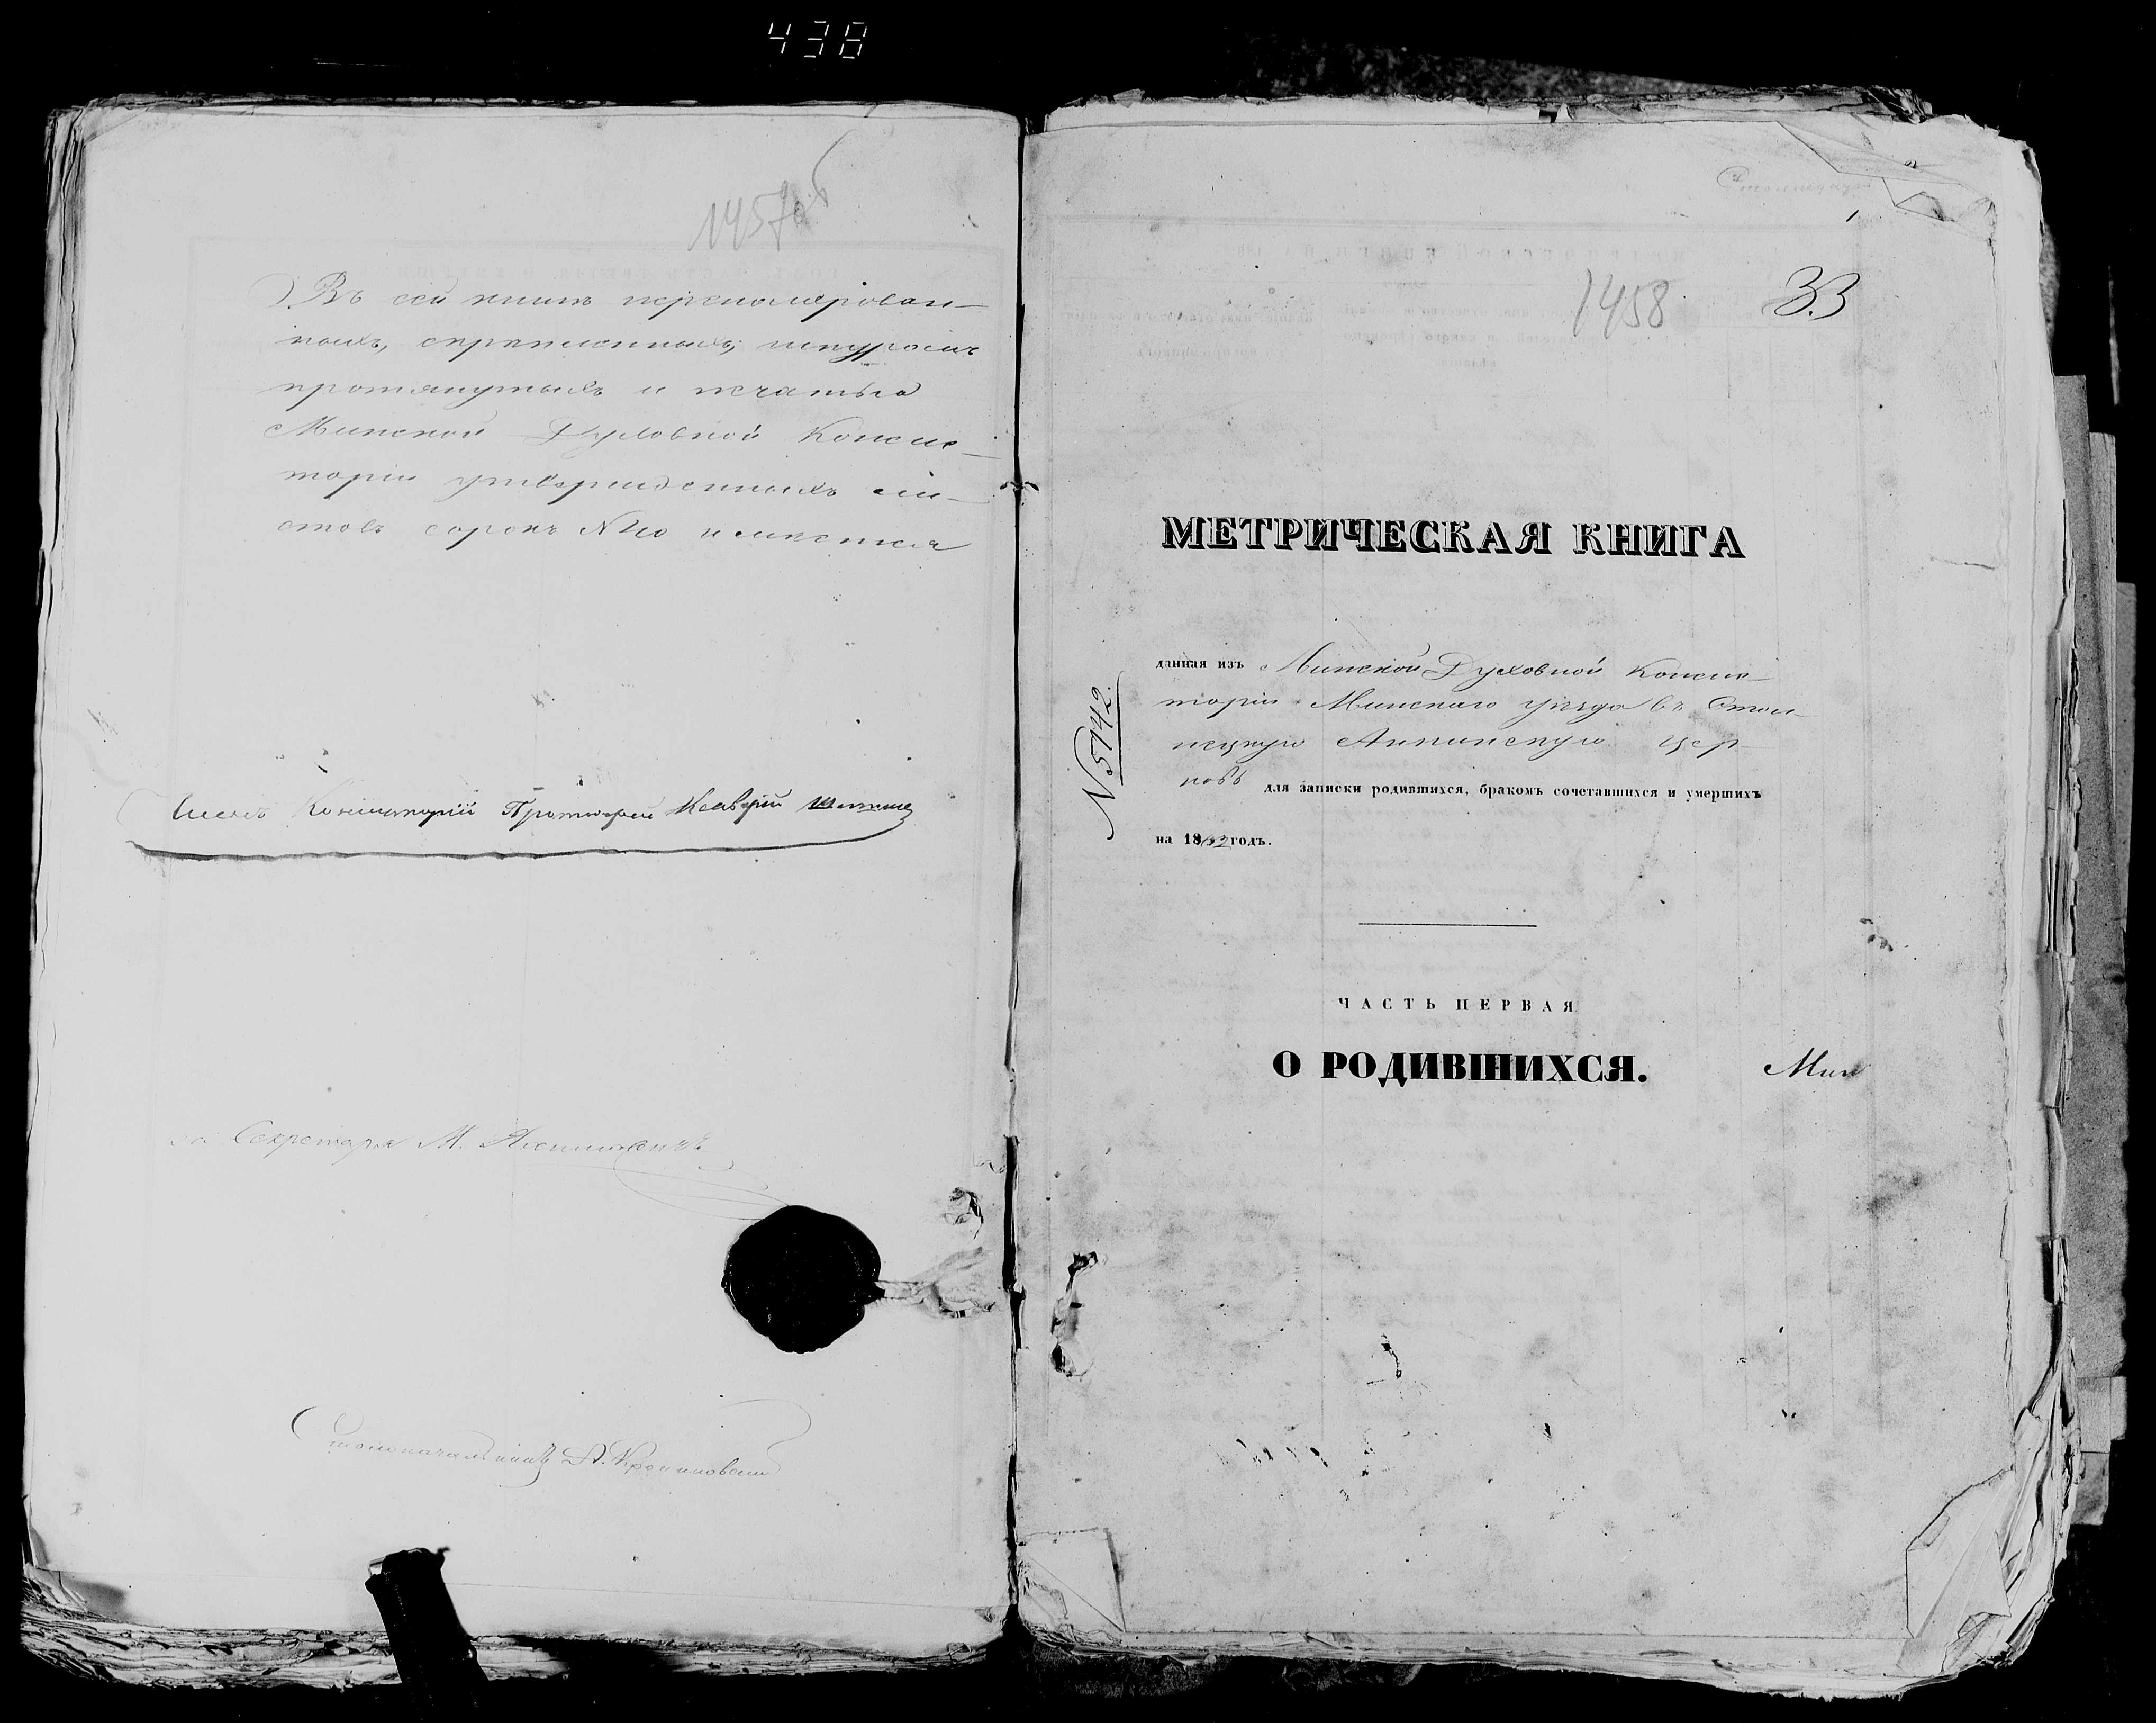 438
1457об
Въ сей книгѣ перенумерован-
ныхъ, скрѣпленныхъ, шнуромъ
протянутыхъ и печатью
Минской Духовной Консис-
торіи утвержденныхъ ли-
стовъ сорокъ N 40 имѣется
Членъ Консисторіи Протоіерей
Секретаря М.
Столоначальникъ
1
1458
33
МЕТРИЧЕСКАЯ КНИГА
данная изъ Минской Духовной Консис-
торіи Минскаго уѣзда въ Стол-
пецкую Аннинскую цер-
ковь для записки родившихся, бракомъ сочетавшихся и умершихъ
N 5142.
на 18 годъ.
ЧАСТЬ ПЕРВАЯ
О РОДИВШИХСЯ.
Мин